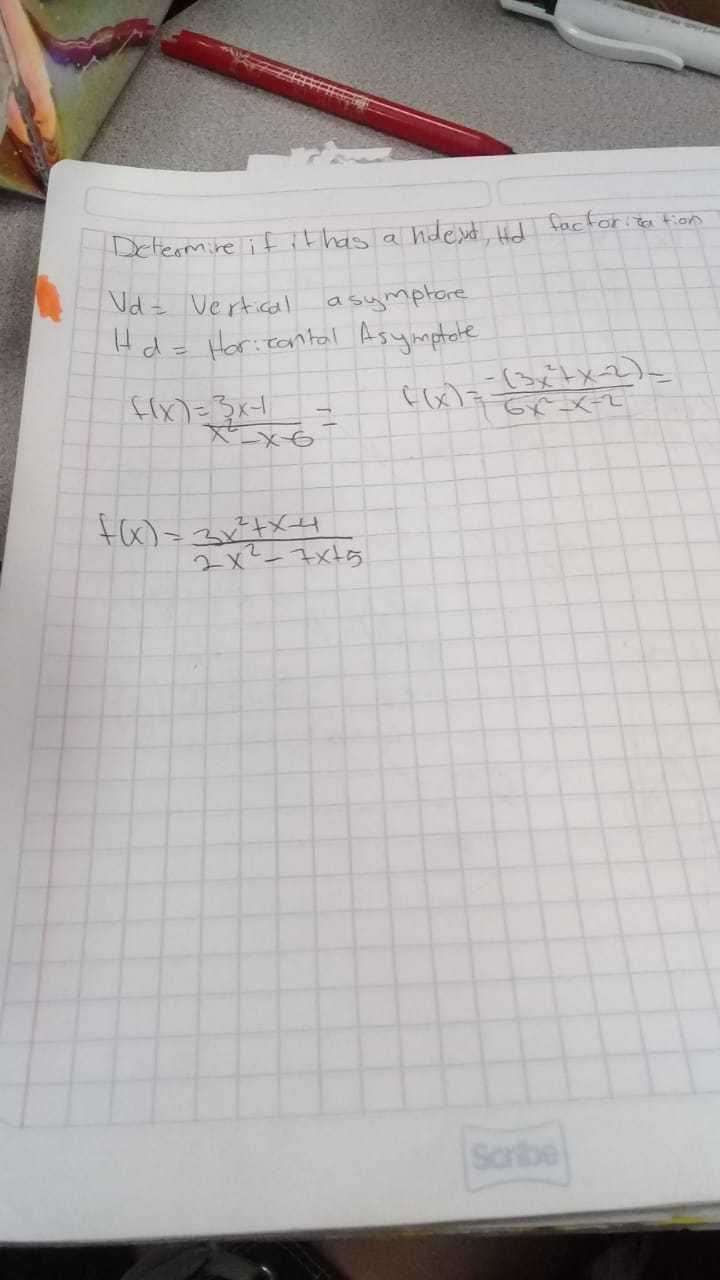 Determine if it has a hole, vd, Hd factorization
Vd = Vertical asymptote
Hd = Horizontal Asymptote
f(x) = 3x-1 / x²-x-6 =
f(x) = -(3x²+x-2) / 6x²-x-2 =
f(x) = 3x²+x-4 / 2x²-7x+5
Scribe